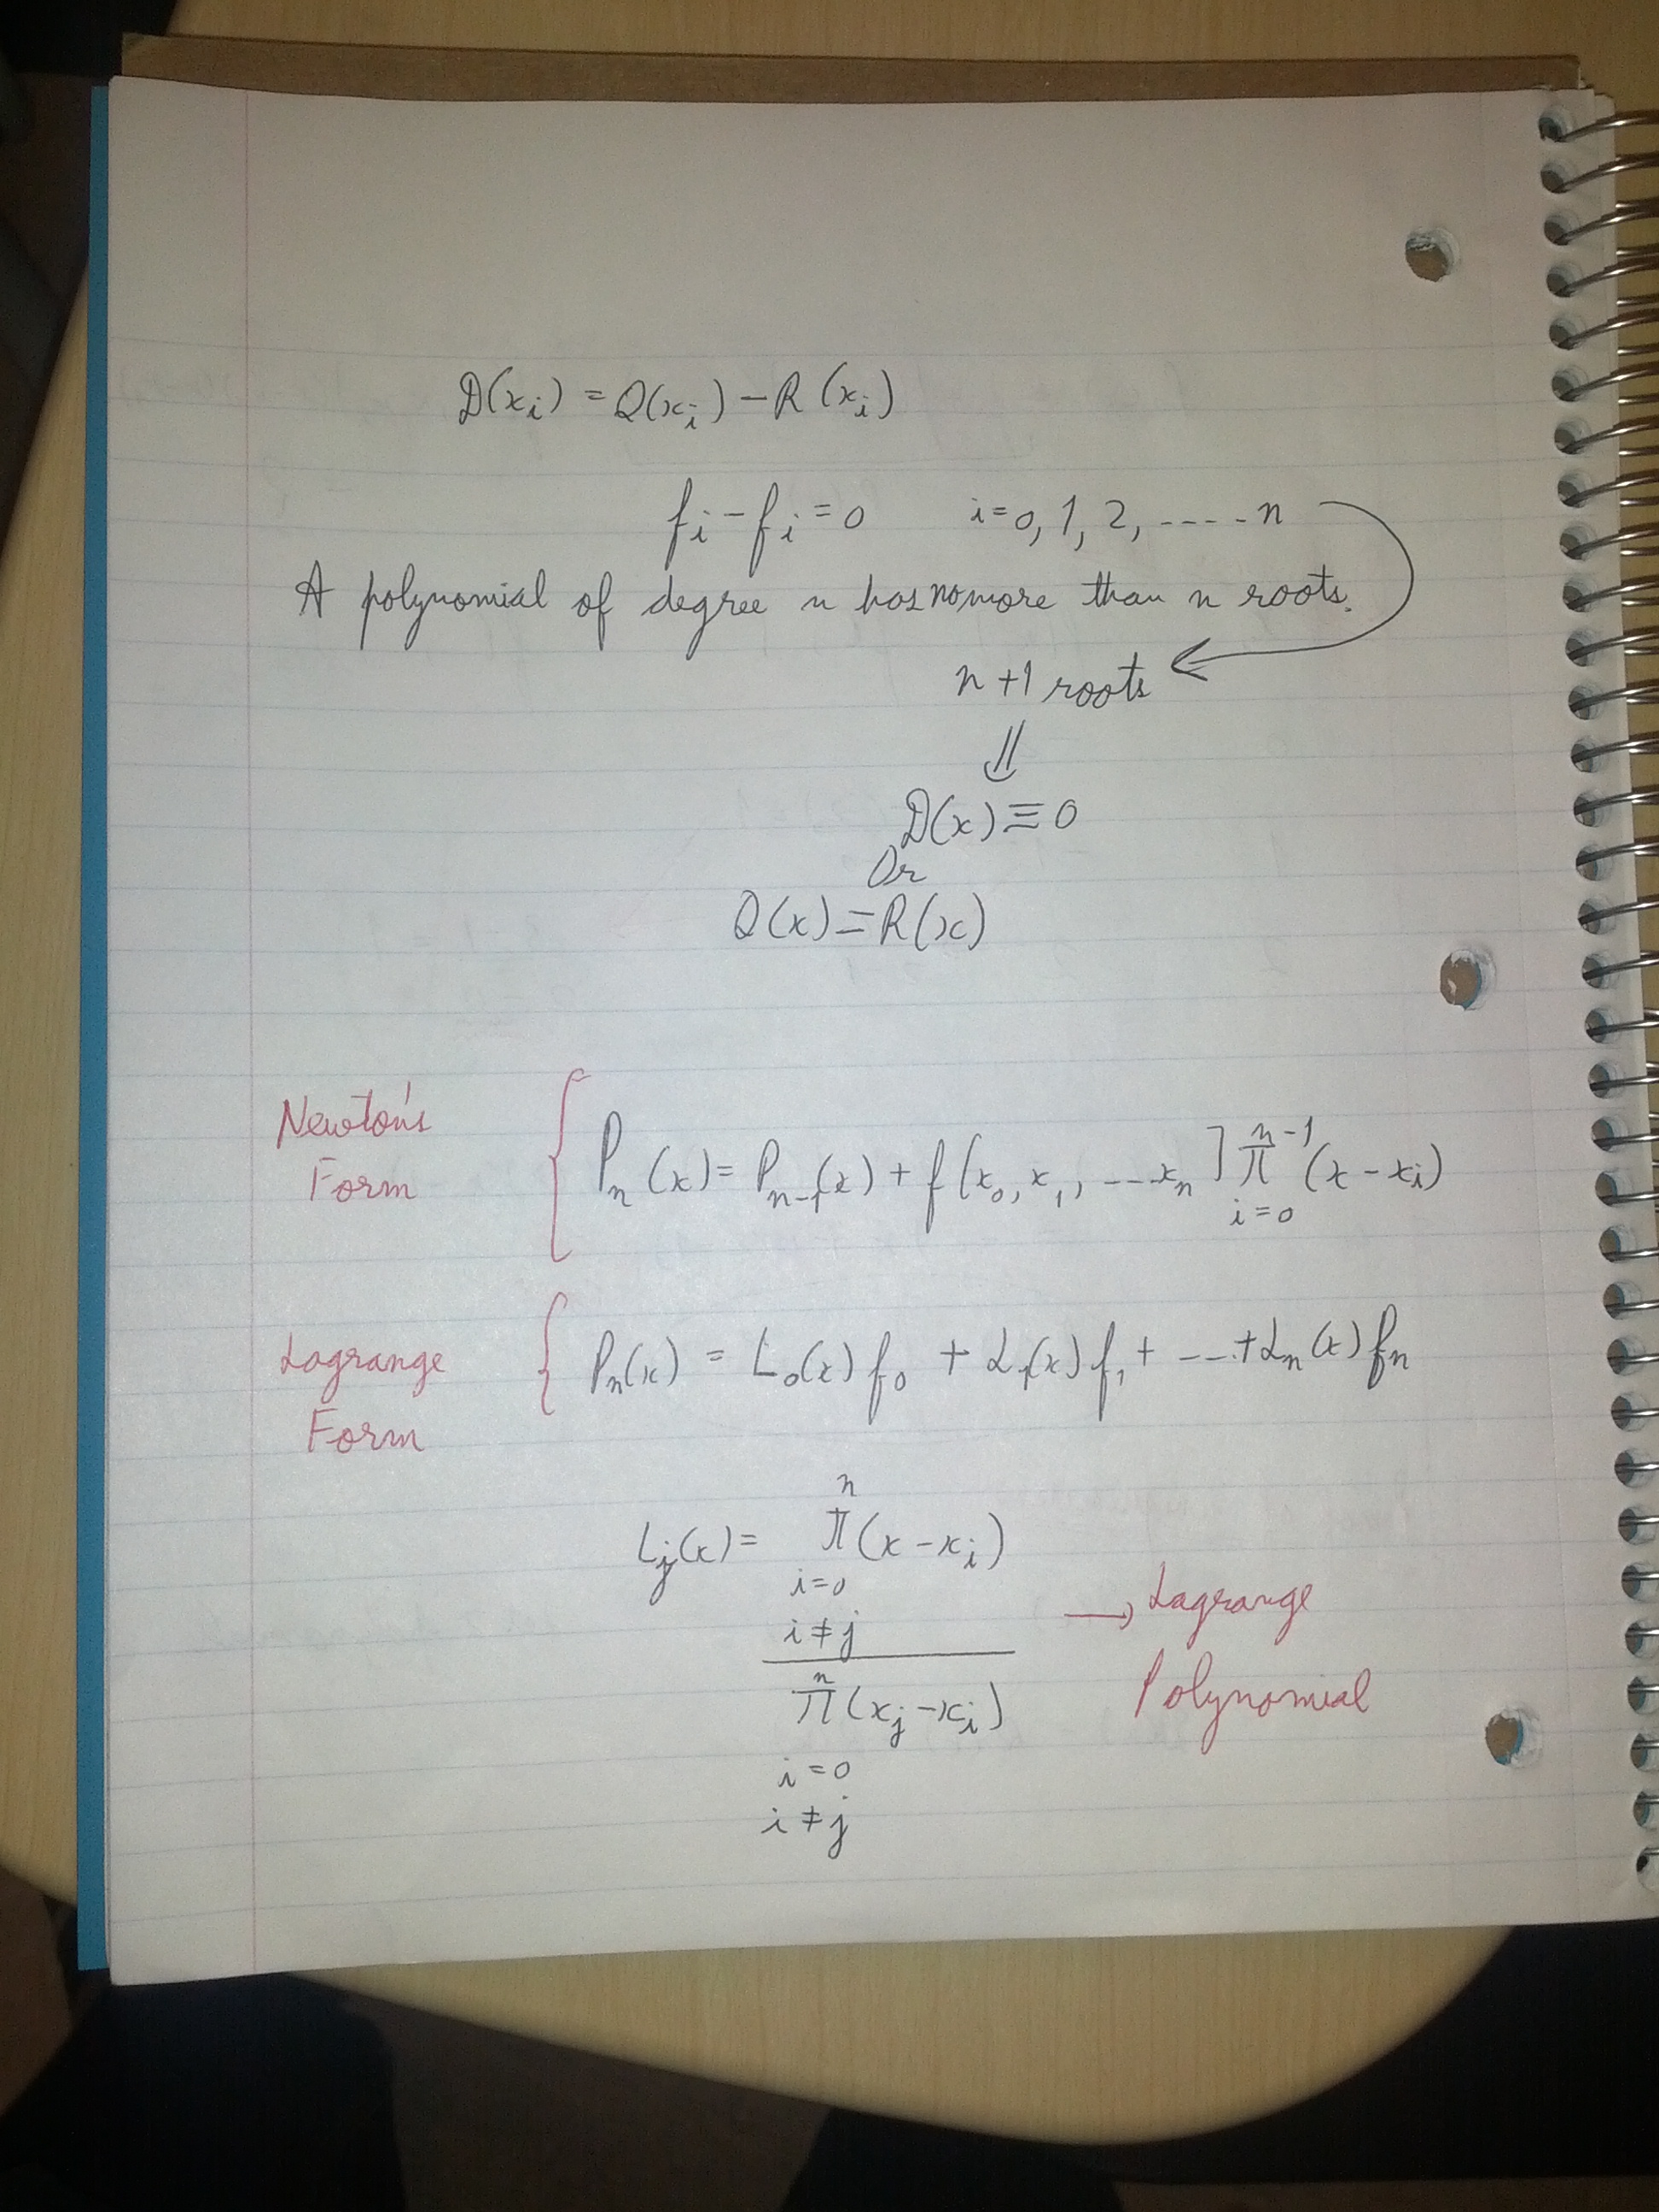 D(xᵢ) = Q(xᵢ) - R(xᵢ)
fᵢ - fᵢ = 0 i = 0, 1, 2, ----- n
A polynomial of degree n has no more than n roots.
n + 1 roots
⇓
D(x) ≡ 0
Or
Q(x) = R(x)
Newton's
Form
{ Pₙ(x) = Pₙ₋₁(x) + f[x₀, x₁, ---xₙ] ∏ⁿ⁻¹ᵢ₌₀ (x - xᵢ)
Lagrange
Form
{ Pₙ(x) = L₀(x) f₀ + L₁(x) f₁ + --- + Lₙ(x) fₙ
n
Lⱼ(x) = π (x - xᵢ)
i = 0
i ≠ j
→ Lagrange
Polynomial
n
π (xⱼ - xᵢ)
i = 0
i ≠ j